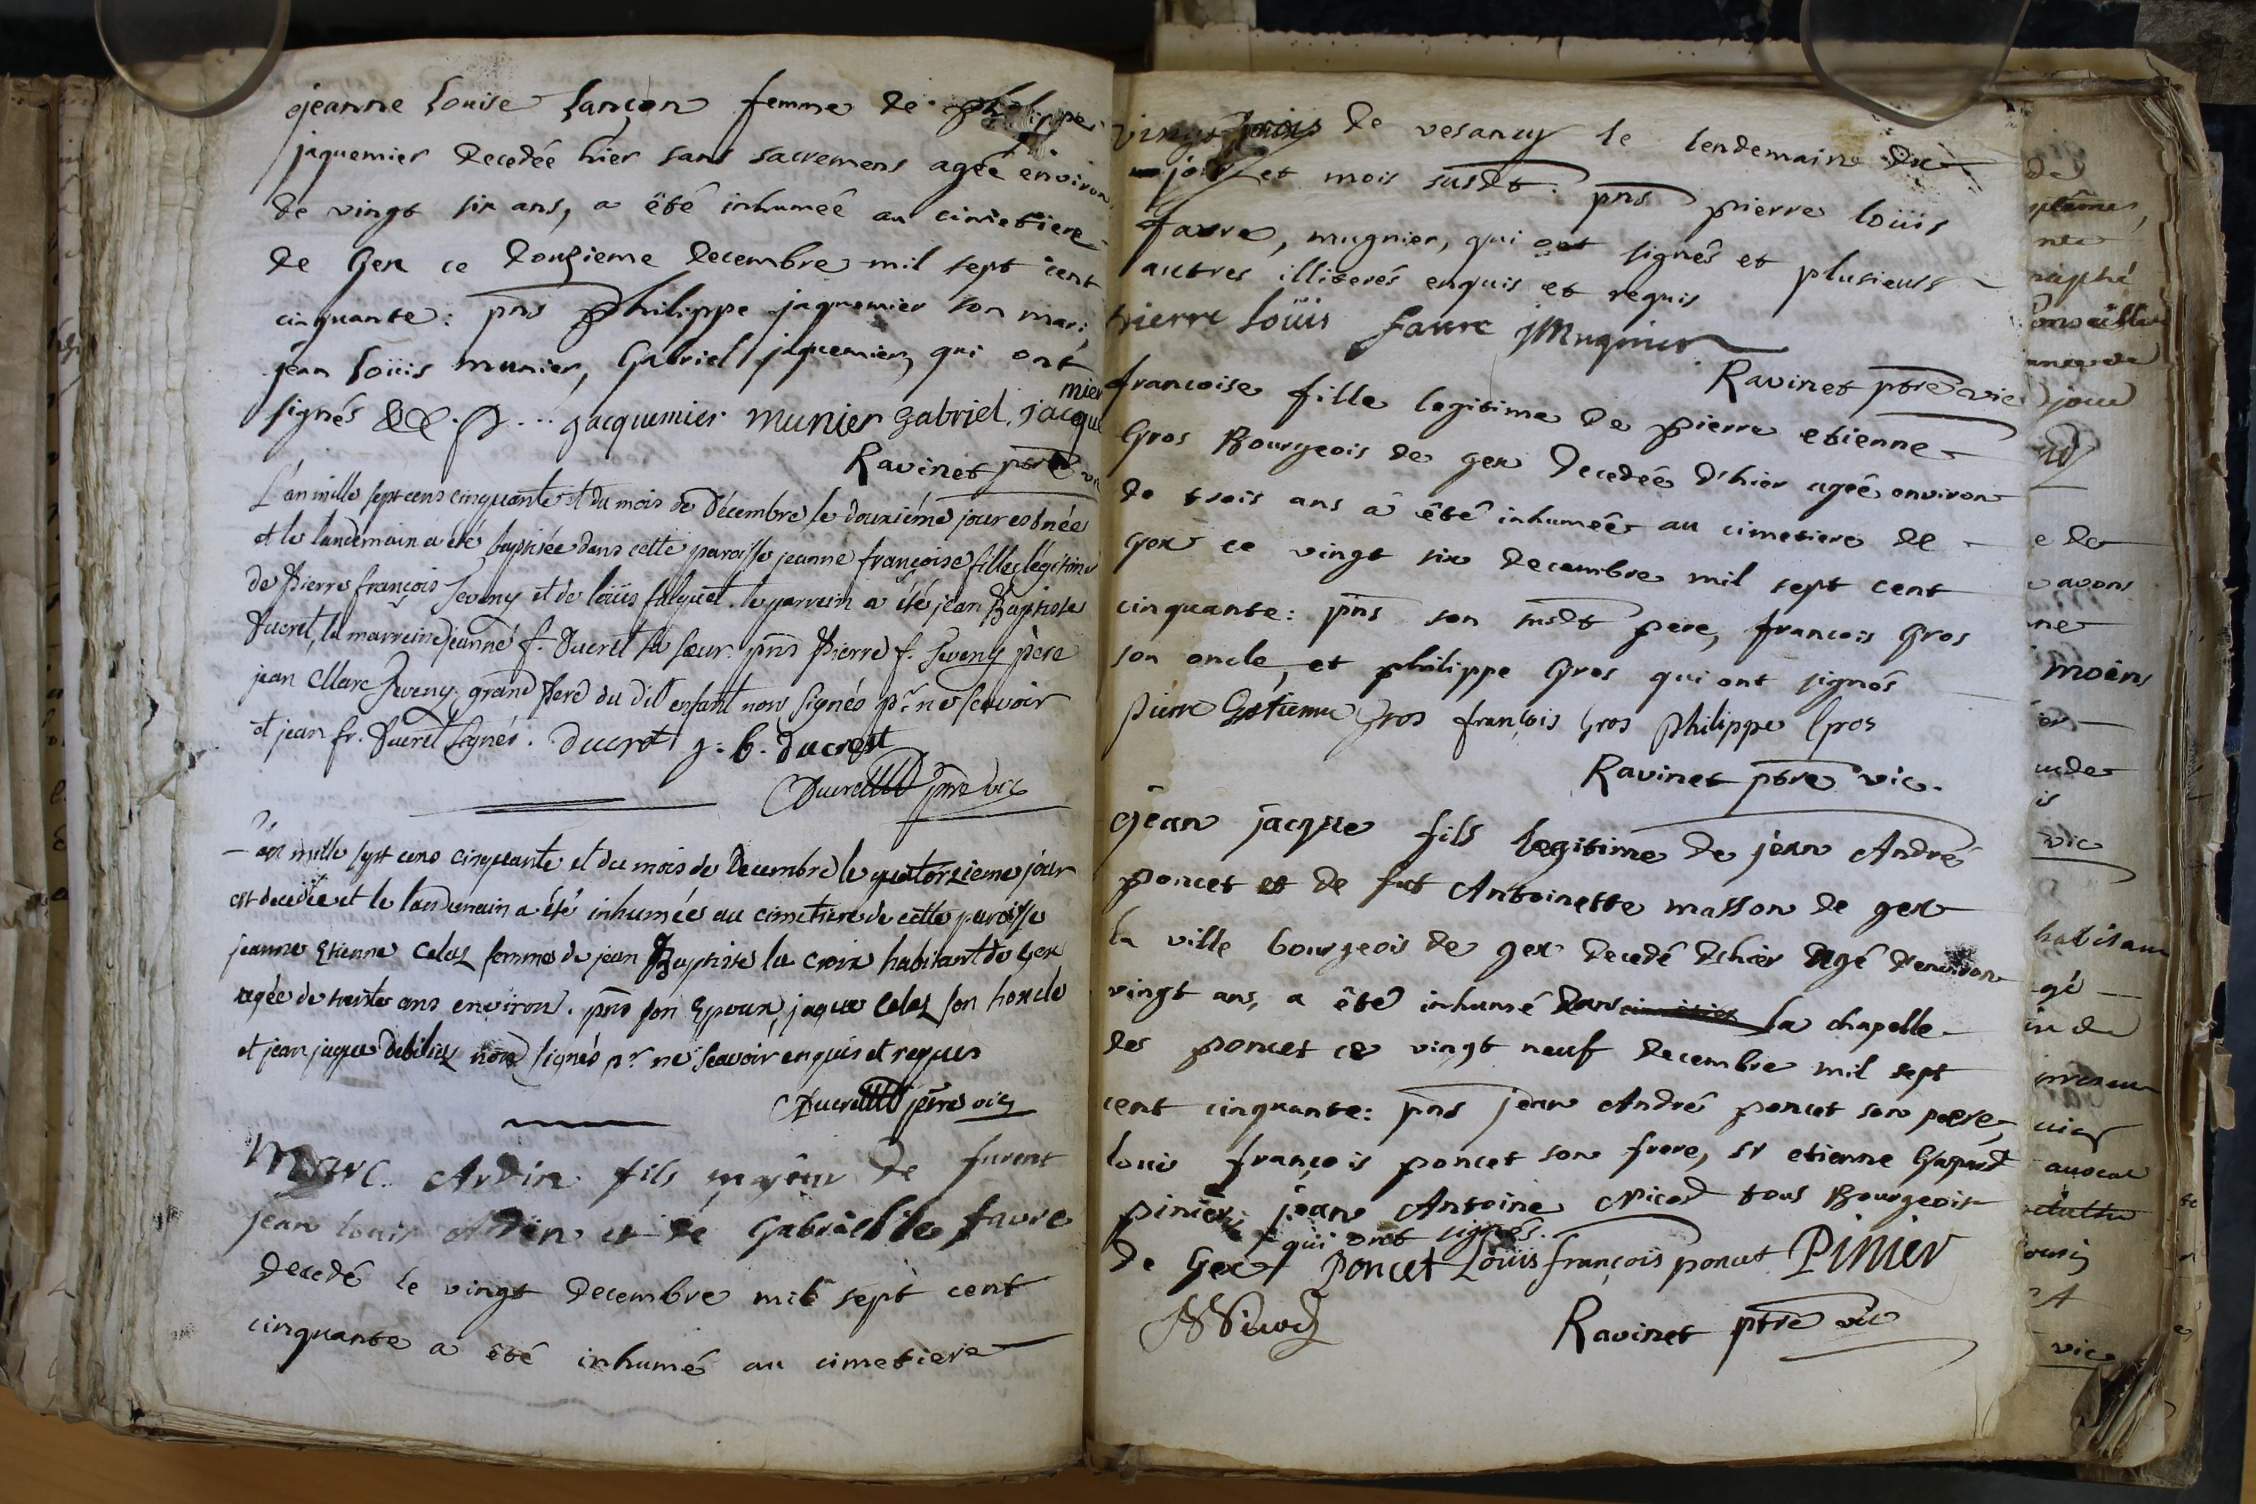 jeanne Louise Lançon femme de philippe
jaquemier decedée hier sans sacremens agée environ
de vingt six ans, a êté inhumée au cimetiere
de Gex ce douzieme decembre mil sept cent
cinquante: pns philippe jaquemier son mari
jean loüis munier, Gabriel jaquemier, qui ont
signés jacquemier munier gabriel jacque
mier
Ravinet ptre vic
L'an mille sept cens cinquante et du mois de Décembre le douxiéme jour est née
et le landemain a été baptisée dans cette paroisse jeanne françoise fille légitime
de Pierre françois Seveny et de loüis falquet. le parrein a été jean Baptiste
Ducret, la marreine jeanne f. Ducret sa sœur. pns Pierre f. Seveny père
jean Marc Seveny grand Pere du dit enfant non signés pr. ne scavoir
et jean fr. Ducret signés. Ducret j: b. ducret
Ducret ptre vic
L'an mille sept cens cinquante et du mois de Decembre le quatorzieme jour
est decedée et le landemain a été inhumée au cimetiere de cette paroisse
jeanne Etienne Celaz femme de jean Baptiste la croix habitant de Gex
agée de trente ans environ. pns son Epoux, jaque Celaz son honcle
et jean jaque non signés pr. ne scavoir enquis et requis
Ducret ptre vic
Marc Ardin fils majeur de furent
jean louis Ardin et de Gabrielle favre
decedé le vingt decembre mil sept cent
cinquante a êté inhumé au cimetiere
vingt trois de vesancy le lendemain du
jour et mois susdt: pns pierre loüis
favre, mugnier, qui ont signés et plusieurs
autres illiterés enquis et requis
Pierre Loüis Favre Mugnier
Ravinet ptre vic
francoise fille legitime de pierre etienne
Gros Bourgeois de gex decedée d'hier agée environ
de trois ans a êté inhumée au cimetiere de
Gex ce vingt six decembre mil sept cent
cinquante: pns son susdt pere, francois Gros
son oncle, et philippe Gros qui ont signés
Pierre Estienne Gros françois Gros Philippe Gros
Ravinet ptre vic.
jean jacque fils legitime de jean André
poncet et de fut Antoinette masson de gex
la ville bourgeois de gex decedé d'hier agé d'environ
vingt ans, a êté inhumé dans la chapelle
des poncet ce vingt neuf decembre mil sept
cent cinquante: pns jean André poncet son pere,
louis françois poncet son frere, sr etienne Gaspard
pinier, jean Antoine Nicod tous Bourgeois
de Gex qui ont signés.
Poncet Loüis françois poncet Pinier
Nicod
Ravinet ptre vic